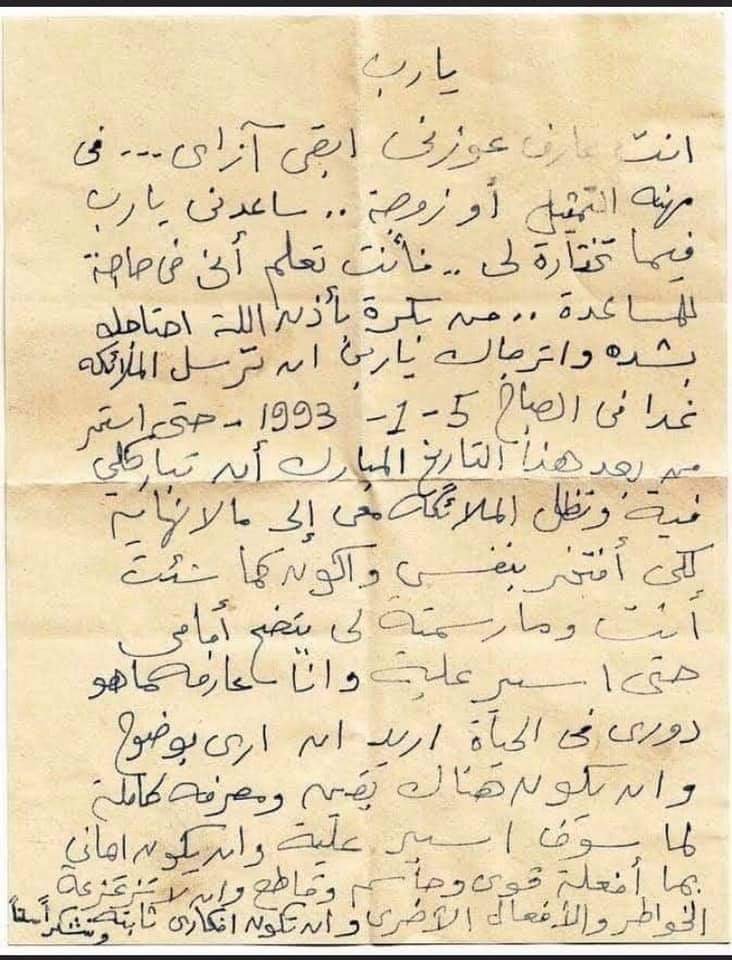 يارب
انت عارف عوزنى ابقى آزاى ... فى
مهنه التمثيل أو زوجة .. ساعدنى يارب
فيما تختارة لى .. فأنت تعلم أنى فى حاجة
للمساعدة .. من بكرة بأذن اللة احتاجله
بشده واترجاك ياربى ان ترسل الملائكه
غدا فى الصباح 5 - 1 - 1993 - حتى استمر
من بعد هذا التاريخ المبارك أن تباركلي
فية وتظل الملائكه معى إلى مالانهايه
لكى أفتخر بنفسى واكون كما شئت
أنت ومارسمتة لى يتضح أمامى
حتى اسير علية وانا عارفه ماهو
دورى فى الحياة اريد ان ارى بوضوح
وان يكون هناك يقين ومعرفه كاملة
لما سوف اسير علية وان يكون امانى
بما أفعلة قوى وحاسم وقاطع وان لاتزعزعة
الخواطر والأفعال الأخرى وان تكون افكارى ثابتة وشكراً